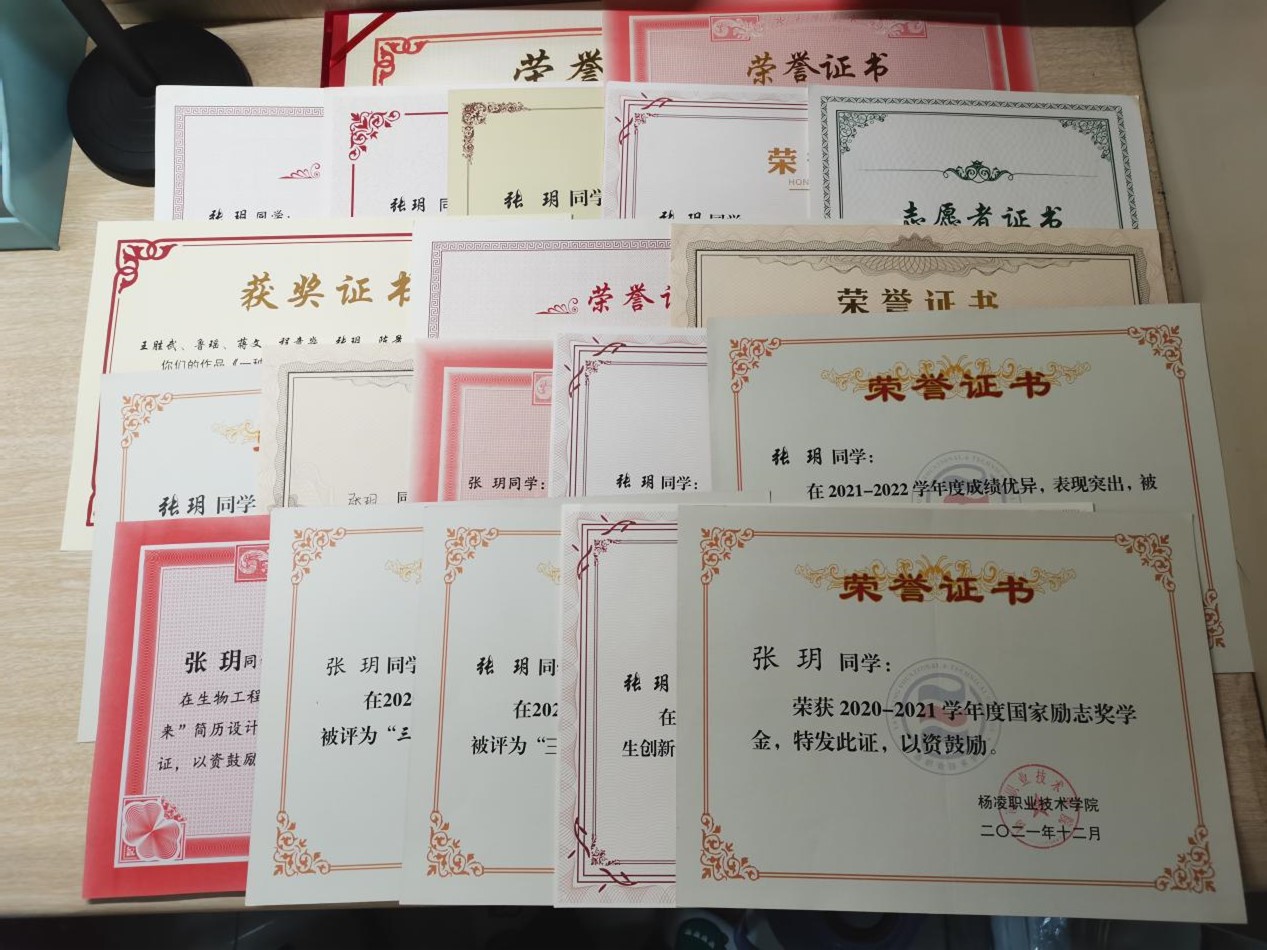 荣誉
荣誉证书
张 玥 同学:
张 玥 同
张 玥 同学
荣
HON
张 玥 同学
志愿者证书
获奖证书
王胜武、鲁瑶、蒋文
张玥、陈
你们的作品《一种
荣誉证
荣誉证书
张 玥 同学
张玥 同
张 玥同学:
张 玥 同学:
荣誉证书
张 玥 同学:
在 2021-2022 学年度成绩优异,表现突出,被
张 玥同
在生物工程
来”简历设计
证,以资鼓励
张 玥 同学
在202
被评为“三
张 玥 同
在202
被评为“三
张 玥
在
生创新
荣誉证书
张 玥 同学:
荣获 2020-2021 学年度国家励志奖学
金,特发此证,以资鼓励。
杨凌职业技术学院
二〇二一年十二月